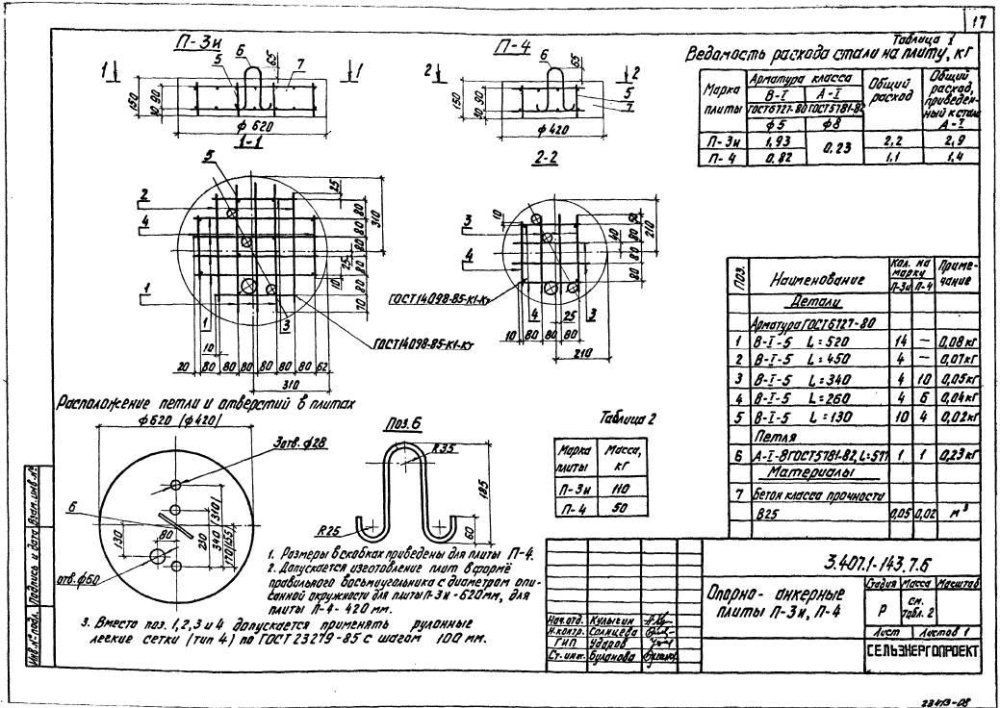 17
П-3и
6
5
65
7
1
1
150
90
30
ф 620
1-1
П-4
6
65
2
2
5
7
150
90
30
ф 420
2-2
Таблица 1
Ведомость расхода стали на плиту, кг
Марка плиты
Арматура класса
В-I
А-I
ГОСТ 6727-80
ГОСТ 5781-82
ф5
ф8
Общий расход
Общий расход, приведенный к стали А-I
П-3и 1,93 0,23 2,2 2,9
П-4 0,82 1,1 1,4
5
2
4
1
1
3
25
80
80
80
25
80
10
70
310
10
20 80 80 80 80 80 80 62
310
ГОСТ 14098-85-К1-Кт
10
3
4
4
3
40
80
80
210
25
10 80 80 80
210
ГОСТ 14098-85-К1-Кт
Поз.
Наименование
Кол. на марку
П-3и П-4
Примечание
Детали
Арматура ГОСТ 6727-80
1 В-I-5 L=520 14 — 0,08кг
2 В-I-5 L=450 4 — 0,07кг
3 В-I-5 L=340 4 10 0,05кг
4 В-I-5 L=260 4 6 0,04кг
5 В-I-5 L=130 10 4 0,02кг
Петля
6 А-I-8 ГОСТ 5781-82, L=577 1 1 0,23кг
Материалы
7 Бетон класса прочности
В25 0,05 0,02 м³
Расположение петли и отверстий в плитах
ф620 (ф420)
3 отв. ф28
6
80
130
отв. ф60
230
340 (310)
170 (155)
Поз. 6
R35
R25
185
60
Таблица 2
Марка плиты
Масса, кг
П-3и 110
П-4 50
1. Размеры в скобках приведены для плиты П-4.
2. Допускается изготовление плит в форме
правильного восьмиугольника с диаметром опи-
санной окружности для плиты П-3и - 620мм, для
плиты П-4 - 420 мм.
3. Вместо поз. 1,2,3 и 4 допускается применять рулонные
легкие сетки (тип 4) по ГОСТ 23279-85 с шагом 100 мм.
Инв.№ подл. Подпись и дата Взам. инв.№
3.407.1-143.7.6
Нач.отд. Кулыгин
Н.контр. Солнцева
ГИП Ударов
Ст. инж. Буланова
Опорно-анкерные
плиты П-3и, П-4
Стадия Масса Масштаб
Р
см. табл. 2
Лист Листов 1
СЕЛЬЭНЕРГОПРОЕКТ